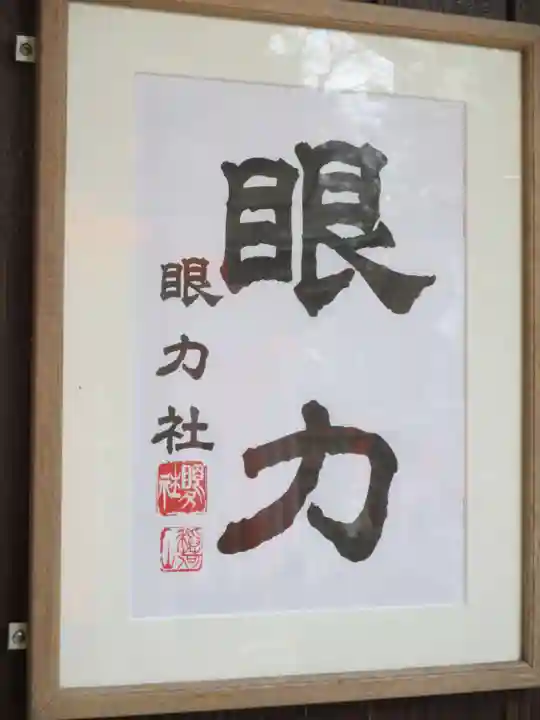 眼力
眼力社